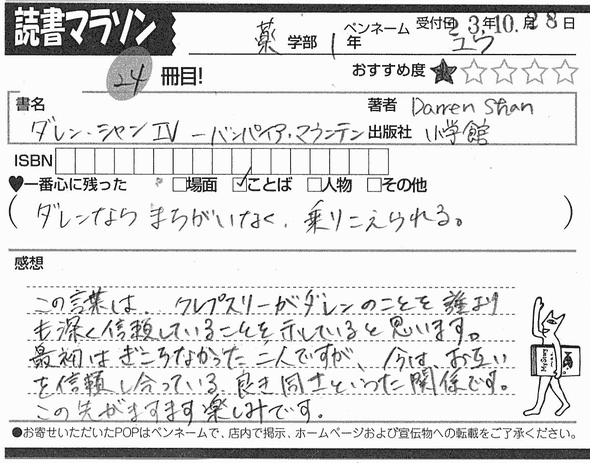 読書マラソン
薬 学部 1 年 ペンネーム ユウ 受付日 23年10月28日
24 冊目! おすすめ度 ★☆☆☆☆
書名 著者 Darren Shan
ダレン・シャンⅣ ーバンパイア・マウンテン 出版社 小学館
ISBN
♥一番心に残った □場面 ☑ことば □人物 □その他
(ダレンなら まちがいなく、乗りこえられる。)
感想
この言葉は、クレプスリーがダレンのことを誰より
も深く信頼していることを示していると思います。
最初はぎこちなかった二人ですが、今は、お互い
を信頼し合っている良き同士といった関係です。
この先がますます楽しみです。
Mystery
●お寄せいただいたPOPはペンネームで、店内で掲示、ホームページおよび宣伝物への転載をご了承ください。